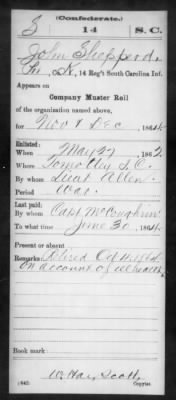 (Confederate.)
S 14 S.C.
John Shepperd
Co. , 14 Reg't South Carolina Inf.
Appears on
Company Muster Roll
of the organization named above,
for Nov & Dec, 1864.
Enlisted:
When May 27, 1862.
Where Timothy S.C.
By whom Lieut Allen
Period War
Last paid:
By whom Capt McCaughrin
To what time June 30, 1864.
Present or absent
Remarks: Retired Oct
on account of ill health
Book mark:
(642) Copyist.